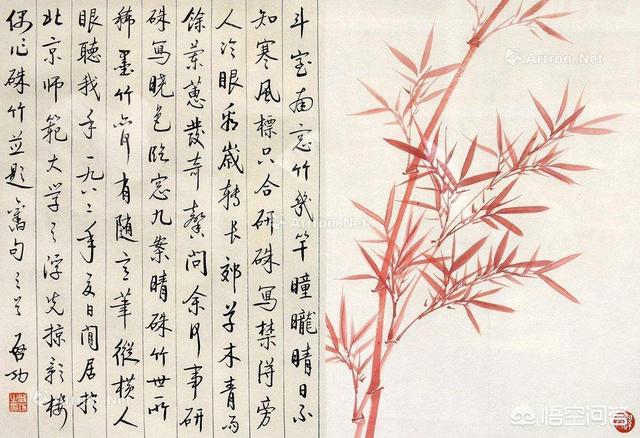 斗室南窓竹幾竿曈曨晴日不
知寒風標只合研硃寫禁得旁
人冷眼看歲轉長郊草木青雨
餘蘭蕙發奇馨問余何事研
硃寫曉色臨窓几案晴硃竹世所
稀墨竹有隨意筆縱橫人
眼聽我手一九八二年夏日閒居於
北京師範大学之浮光掠影樓
偶作硃竹並題舊句 啓功
Artron.Net
悟空问答